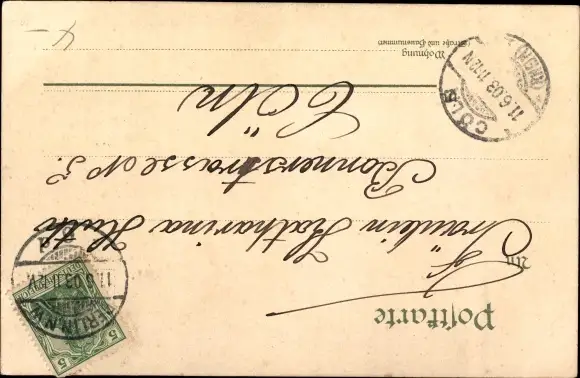 Postkarte
An
Fräulein Katharina
Bonnerstrasse No 5.
Cöln
Wohnung
(Straße und Hausnummer)
BERLIN, N.W.
11.6.03.11-12V.
5
5
CÖLN
11.6.03.11-12N
4